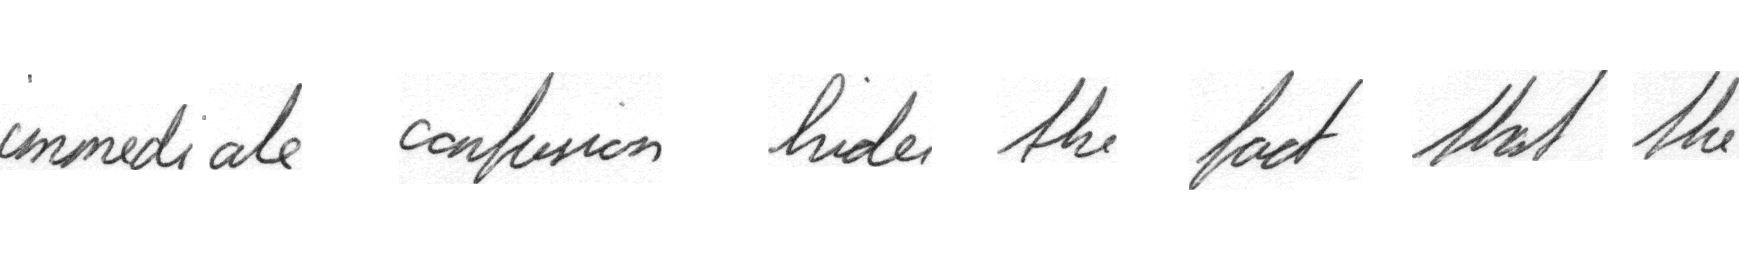 immediate confusion hides the fact that the